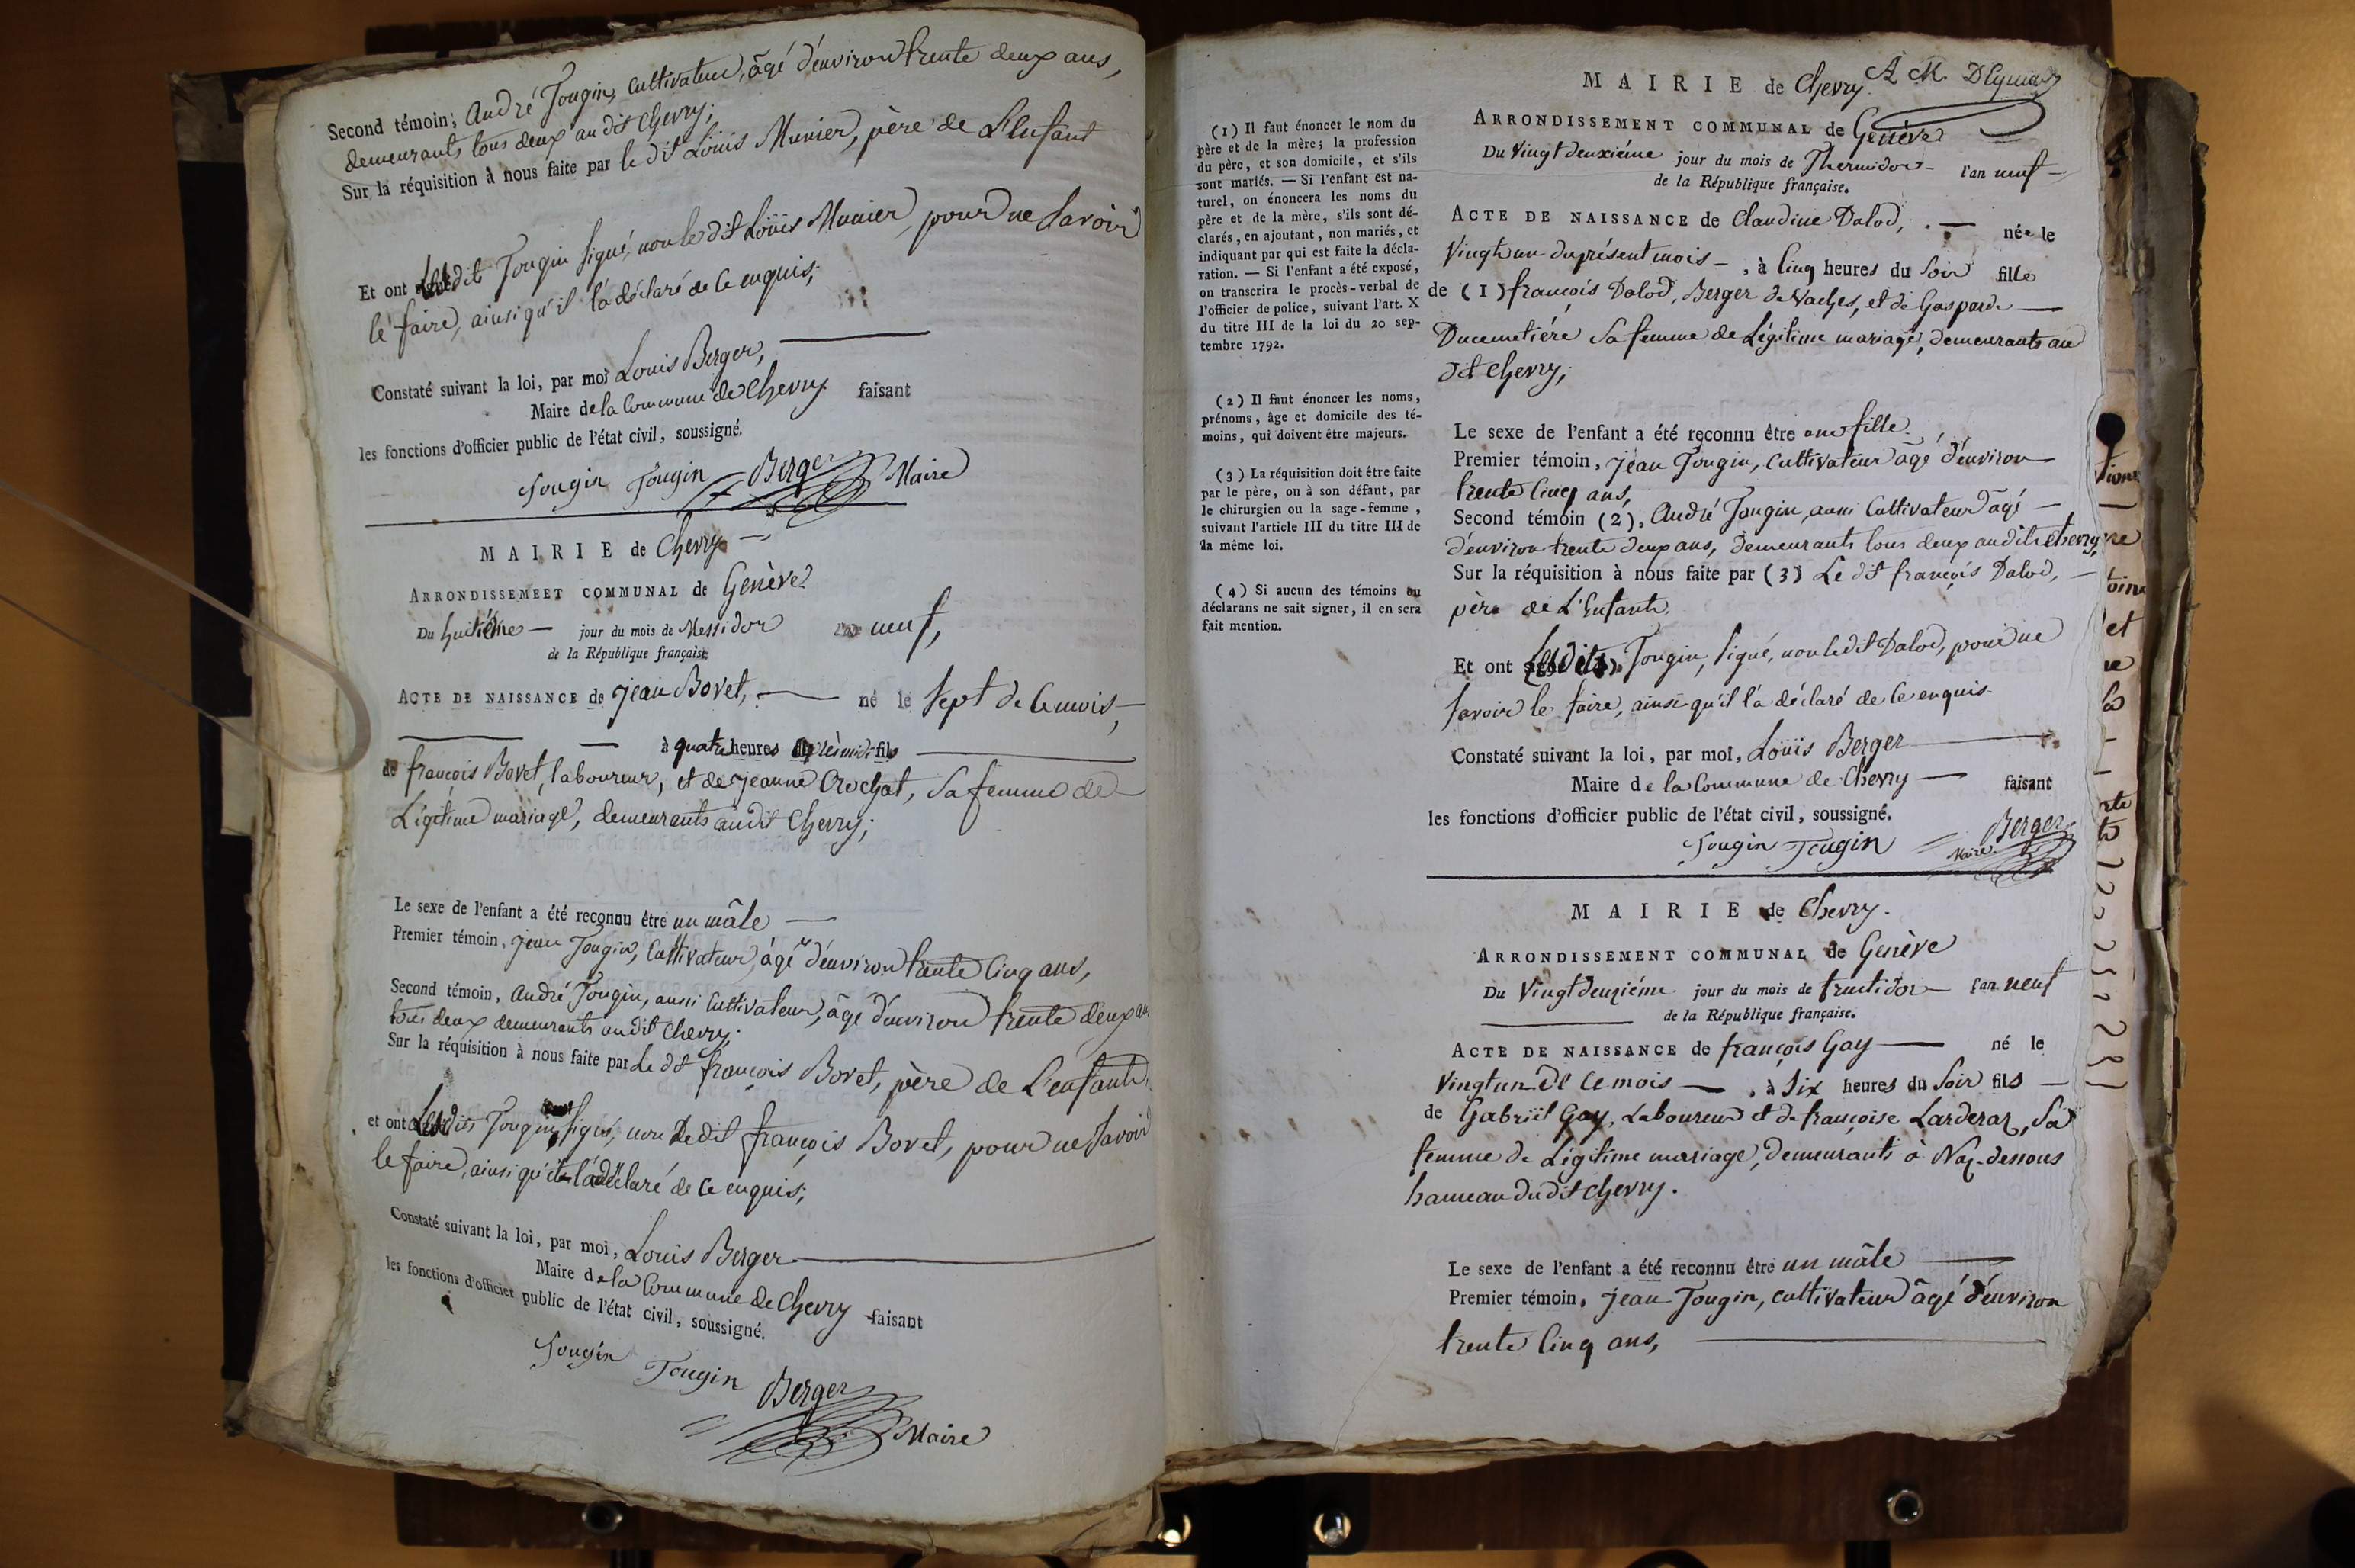 Second témoin, André Tougin, cultivateur, âgé d'environ trente deux ans,
demeurants tous deux au dit Chevry;
Sur la réquisition à nous faite par le dit Louis Munier, père de L'Enfant
Et ont Lesdits Tougin signé, non le dit Louis Munier, pour ne savoir
le faire, ainsi qu'il l'a déclaré de ce enquis;
Constaté suivant la loi, par moi Louis Berger,
Maire de la Commune de Chevry faisant
les fonctions d'officier public de l'état civil, soussigné.
Tougin Tougin Berger Maire
MAIRIE de Chevry
ARRONDISSEMEET COMMUNAL de Genève
Du huitième jour du mois de Messidor neuf,
de la République française.
ACTE DE NAISSANCE de Jean Bovet, né le sept de ce mois,
à quatre heures après midi fils
de françois Bovet, laboureur, et de Jeanne Crochat, sa femme de
Légitime mariage, demeurants audit Chevry;
Le sexe de l'enfant a été reconnu être un mâle
Premier témoin, Jean Tougin, Cultivateur, âgé d'environ trente cinq ans,
Second témoin, André Tougin, aussi Cultivateur, âgé d'environ trente deux ans
tous deux demeurants audit Chevry;
Sur la réquisition à nous faite par Le dit françois Bovet, père de L'enfant
et ont Lesdits Tougin signé, non Le dit françois Bovet, pour ne savoir
le faire, ainsi qu'il l'a déclaré de ce enquis;
Constaté suivant la loi, par moi, Louis Berger
Maire de la Commune de Chevry faisant
les fonctions d'officier public de l'état civil, soussigné.
Tougin Tougin Berger
Maire
(1) Il faut énoncer le nom du
père et de la mère; la profession
du père, et son domicile, et s'ils
sont mariés. — Si l'enfant est na-
turel, on énoncera les noms du
père et de la mère, s'ils sont dé-
clarés, en ajoutant, non mariés, et
indiquant par qui est faite la décla-
ration. — Si l'enfant a été exposé,
on transcrira le procès-verbal de
l'officier de police, suivant l'art. X
du titre III de la loi du 20 sep-
tembre 1792.
(2) Il faut énoncer les noms,
prénoms, âge et domicile des té-
moins, qui doivent être majeurs.
(3) La réquisition doit être faite
par le père, ou à son défaut, par
le chirurgien ou la sage-femme,
suivant l'article III du titre III de
la même loi.
(4) Si aucun des témoins ou
déclarans ne sait signer, il en sera
fait mention.
MAIRIE de Chevry
ARRONDISSEMENT COMMUNAL de Genève
Du Vingt deuxiéme jour du mois de Thermidor l'an neuf
de la République française.
ACTE DE NAISSANCE de Claudine Dalod, née le
Vingt un du présent mois, à Cinq heures du Soir fille
de (1) françois Dalod, Berger de Vaches, et de Gasparde
Ducemetiére sa femme de Légitime mariage, demeurants au
dit Chevry;
Le sexe de l'enfant a été reconnu être une fille
Premier témoin, Jean Tougin, Cultivateur âgé d'environ
trente Cinq ans,
Second témoin (2), André Tougin, aussi Cultivateur âgé
d'environ trente deux ans, demeurants tous deux audit Chevry,
Sur la réquisition à nous faite par (3) Le dit françois Dalod,
père de L'Enfant,
Et ont Lesdits Tougin, signé, non ledit Dalod, pour ne
savoir le faire, ainsi qu'il l'a déclaré de ce enquis.
Constaté suivant la loi, par moi, Louis Berger
Maire de la Commune de Chevry faisant
les fonctions d'officier public de l'état civil, soussigné.
Tougin Tougin Berger
Maire
MAIRIE de Chevry.
ARRONDISSEMENT COMMUNAL de Genève
Du Vingt deuxiéme jour du mois de fructidor l'an neuf
de la République française.
ACTE DE NAISSANCE de françois Gay né le
Vingt un de ce mois, à Six heures du Soir fils
de Gabriël Gay, Laboureur et de françoise Larderaz, sa
femme de Légitime mariage, demeurants à Naz-dessous
hameau du dit Chevry.
Le sexe de l'enfant a été reconnu être un mâle
Premier témoin, Jean Tougin, cultivateur âgé d'environ
trente Cinq ans,